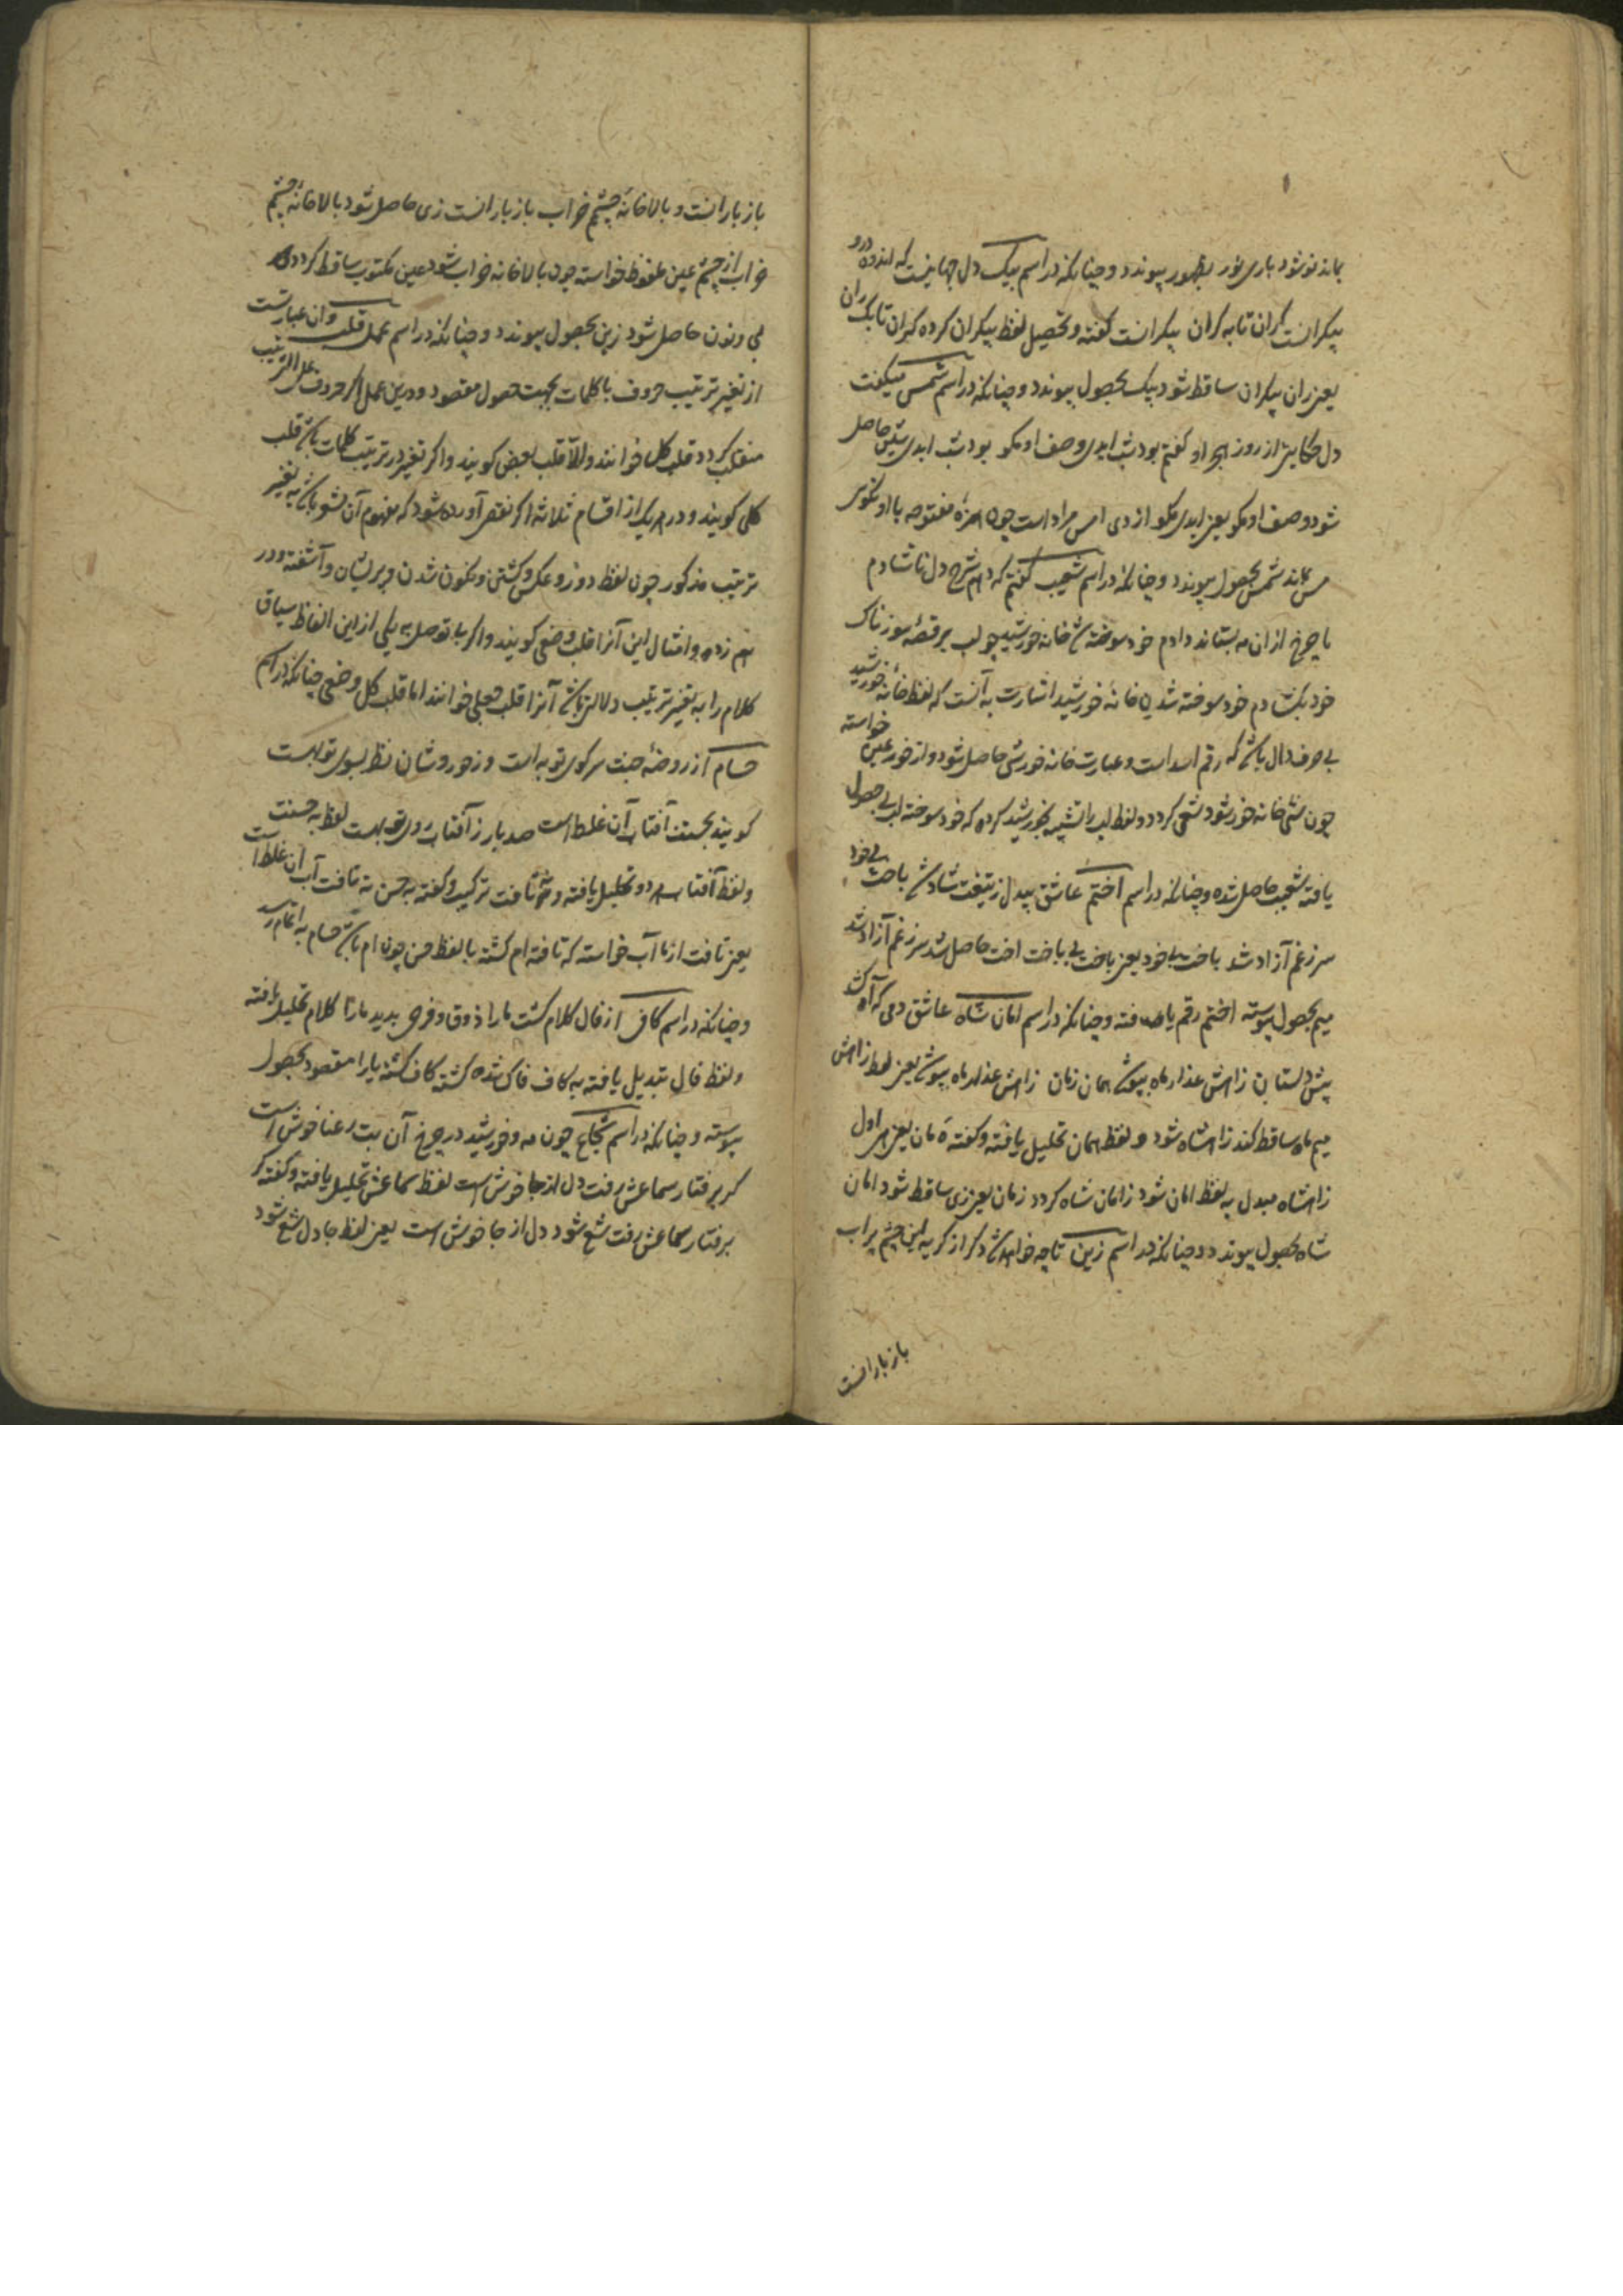 بماند نو شود باری نور بظهور پیوندد و چنانکه در اسم بیک دل جهانیست که اندوه درو
بیکرانست کران تا به کران بیکرانست گفته و تحصیل لفظ بیکران کرده کران تا بکران
یعنی ران بیکران ساقط شود بیک بحصول پیوندد و چنانکه در اسم شمس میگفت
دل حکایتی از روز هجر او گفتم بود شب ابدی وصف او مکو بود شب ابدی شین حاصل
شود وصف او مکو یعنی ابدی مکو از دی امس مراد است چون همزه مفتوحه با او نگویی
مس بماند شمس بحصول پیوندد و چنانکه در اسم شعیب گفتم که دهم شرح دل ناشادم
با چرخ از ان مه بستاند دادم خود سوخته شد خانه خورشید چو لب بر قصه سوزناک
خود بگشادم خود سوخته شدن خانه خورشید اشارت به آنست که لفظ خانه خورشید
بی حرف دال باشد که رقم اسد است و عبارت خانه خورشی حاصل شود و از خور عین خواسته
چون شی خانه خور شود شعی گردد و لفظ لب را تشبیه بخورشید کرده که خود سوخته لب بی حصول
یافته شعیب حاصل شده و چنانکه در اسم اختم عاشق بیدل ز تیغت شاد شد باخت بی خود
سر ز غم آزاد شد باخت بی خود یعنی باخت بی باخت اخت حاصل شد سر ز غم آزاد شد
میم بحصول پیوسته اختم رقم یافته و چنانکه در اسم امان شاه عاشق دمی که آه کشد
پیش دلستان زاهش عذار ماه بپوشد همان زمان زاهش عذار ماه بپوشد یعنی لفظ زاهش
میم ماه ساقط کند زاهشاه شود و لفظ همان تحلیل یافته و گفته ه مان یعنی هر اول
زاهشاه مبدل به لفظ امان شود زامان شاه گردد زمان یعنی زی ساقط شود امان
شاه بحصول پیوندد و چنانکه در اسم زین تا چه خواهد شد دگر از گریه این چشم پر آب
باز بارانست
باز بارانست و بالاخانه چشم خراب باز بارانست زی حاصل شود بالاخانه چشم
خراب از چشم عین ملفوظ خواسته چون بالاخانه خراب شود عین مکتوب ساقط گردد
یی و نون حاصل شود زین بحصول پیوندد و چنانکه در اسم عمل قلب و آن عبارتست
از تغییر ترتیب حروف یا کلمات بجهت حصول مقصود و درین عمل اگر حروف علی الترتیب
منقلب گردد قلب کل خوانند و الّا قلب بعض گویند و اگر تغییر در ترتیب کلمات باشد قلب
کلی گویند و در هر یک از اقسام ثلاثه اگر لفظی آورده شود که مفهوم آن مشعر باشد به تغییر
ترتیب مذکور چون لفظ دور و عکس و گشتن و نگون شدن و پریشان و آشفته و در
هم زده و امثال این آنرا قلب وضعی گویند و اگر بی توصل به یکی از این الفاظ سیاق
کلام را به تغییر ترتیب دلالتی باشد آنرا قلب جعلی خوانند اما قلب کل وضعی چنانکه در اسم
حسام از روضه جنت سر کوی تو به است وز حور وشان نظر بسوی تو بهست
گویند بحسنت آفتاب آن غلط است صد بار ز آفتاب روی تو بهست لفظ به حسنت
و لفظ آفتاب هر دو تحلیل یافته و تافت ترکیب و گفته به حسن ته تافت آب آن غلط است
یعنی تافت از ما آب خواسته که تافته ام گشته با لفظ حس چون ام باشد حسام به اتمام رسد
و چنانکه در اسم کافی از فال کلام گشت ما را ذوق و فرحی پدید مارا کلام تحلیل یافته
و لفظ فال تبدیل یافته به کاف فاک شده گشته کاف گشته یا را مقصود بحصول
پیوسته و چنانکه در اسم شجاع چون مه و خورشید در چرخ آن بت رعنا خوش است
گر برفتار سماعش رفت دل از جا خوش است لفظ سماعش تحلیل یافته و گفته گر
برفتار سماعش رفت شع شود دل از جا خوش است یعنی لفظ جا دل شع شود